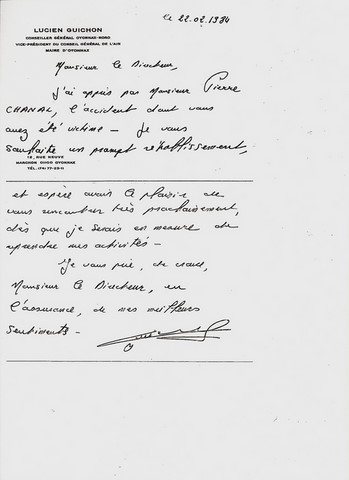 LUCIEN GUICHON
CONSEILLER GÉNÉRAL OYONNAX-NORD
VICE-PRÉSIDENT DU CONSEIL GÉNÉRAL DE L'AIN
MAIRE D'OYONNAX
le 22.02.1984
Monsieur le Directeur,
J'ai appris par Monsieur Pierre
CHANAL, l'accident dont vous
avez été victime - Je vous
souhaite un prompt rétablissement,
12, RUE NEUVE
MARCHON 01100 OYONNAX
TÉL. (74) 77-25-11
et espère avoir le plaisir de
vous rencontrer très prochainement,
dès que je serais en mesure de
reprendre mes activités -
Je vous prie, de croire,
Monsieur le Directeur, en
l'assurance, de mes meilleurs
sentiments -